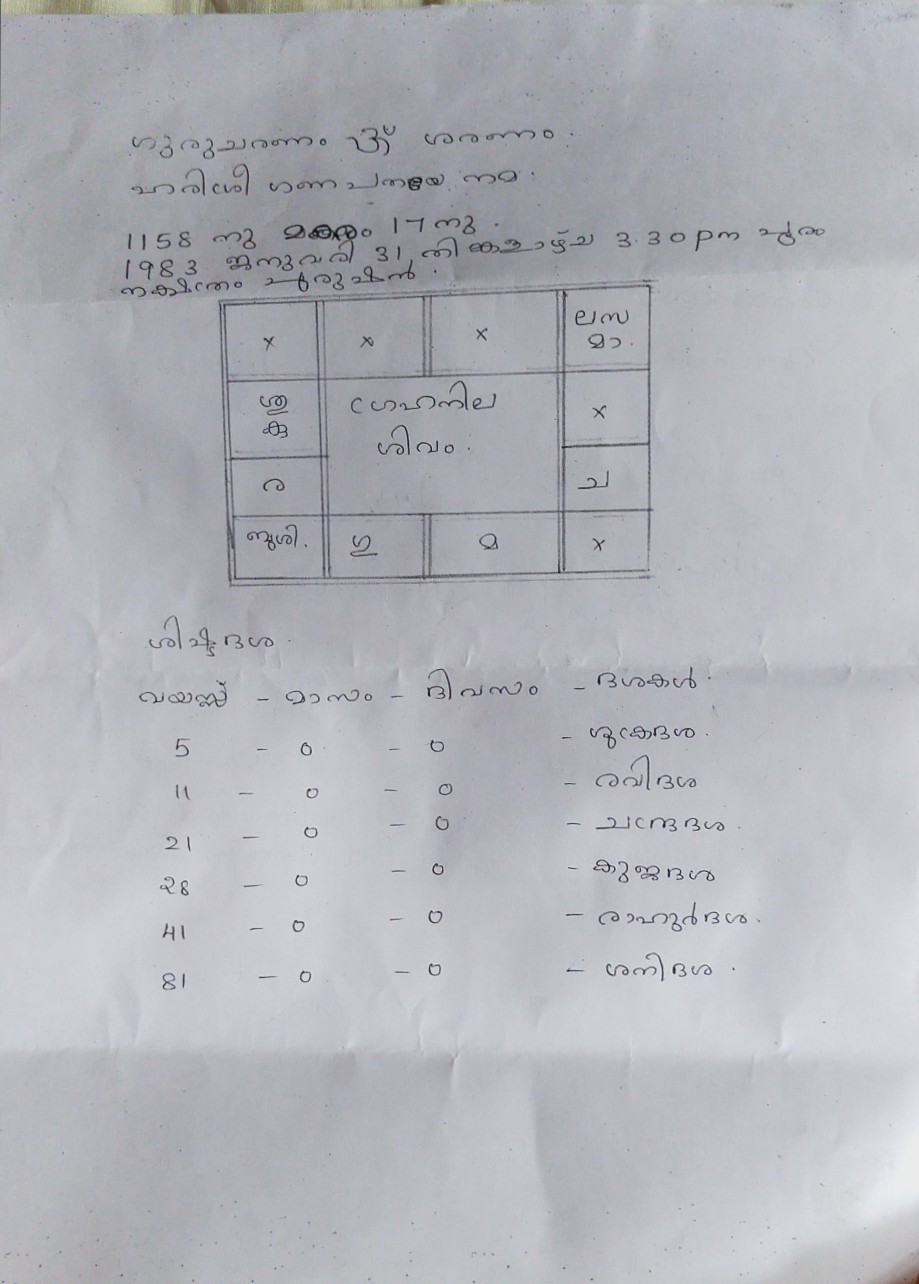 ഗുരുചരണം ശരണം.
ഹരിശ്രീ ഗണപതയെ നമ.
1158 നു മകരം 17 നു.
1983 ജനുവരി 31 തിങ്കളാഴ്ച 3.30 pm പൂരം
നക്ഷത്രം പുരുഷൻ.
x x x ലസ
മാ.
ശു
കു
ഗ്രഹനില
ശിവം.
x
ര ച
ബുശി. ഗു മ x
ശിഷ്ടദശ.
വയസ്സ് - മാസം - ദിവസം - ദശകൾ.
5 - 0 - 0 - ശുക്രദശ.
11 - 0 - 0 - രവിദശ
21 - 0 - 0 - ചന്ദ്രദശ.
28 - 0 - 0 - കുജദശ
41 - 0 - 0 - രാഹുർദശ.
81 - 0 - 0 - ശനിദശ.